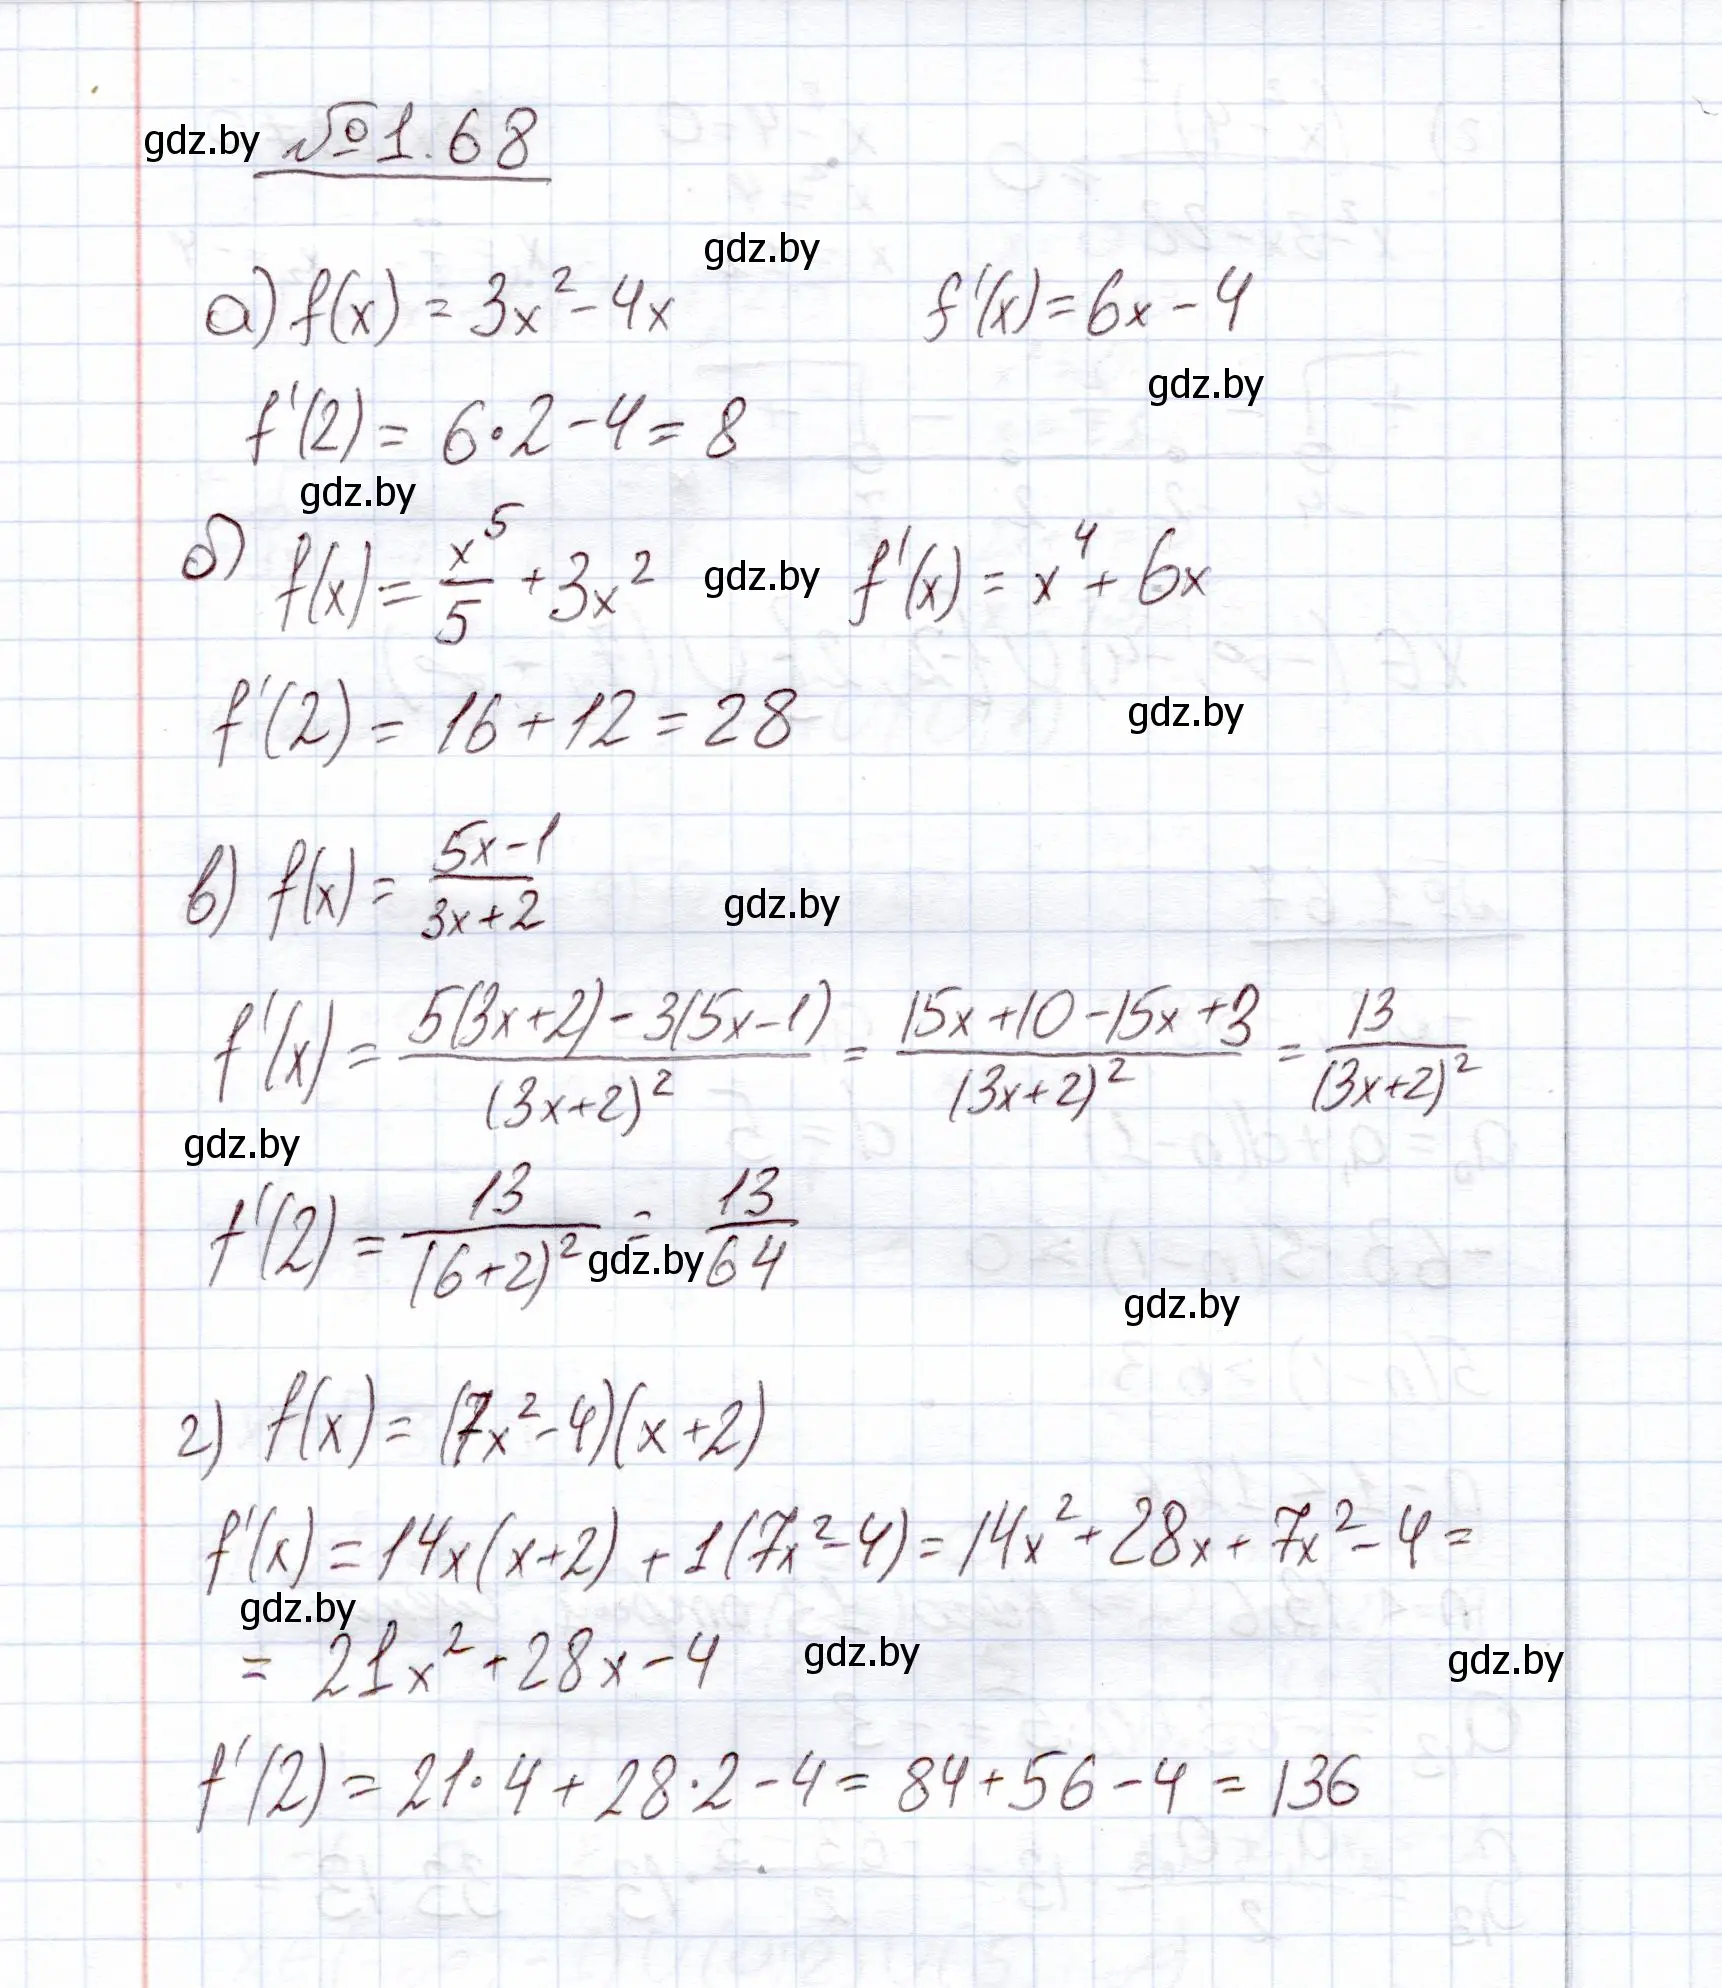 gdz.by №1.68
gdz.by
а) f(x) = 3x² - 4x f'(x) = 6x - 4
gdz.by
f'(2) = 6·2 - 4 = 8
gdz.by
б) f(x) = x⁵/5 + 3x² gdz.by f'(x) = x⁴ + 6x
f'(2) = 16 + 12 = 28 gdz.by
в) f(x) = (5x-1)/(3x+2) gdz.by
f'(x) = (5(3x+2) - 3(5x-1))/(3x+2)² = (15x+10-15x+3)/(3x+2)² = 13/(3x+2)²
gdz.by
f'(2) = 13/(6+2)² = 13/64
gdz.by
gdz.by
г) f(x) = (7x²-4)(x+2)
f'(x) = 14x(x+2) + 1(7x²-4) = 14x² + 28x + 7x² - 4 =
gdz.by
= 21x² + 28x - 4 gdz.by gdz.by
f'(2) = 21·4 + 28·2 - 4 = 84 + 56 - 4 = 136